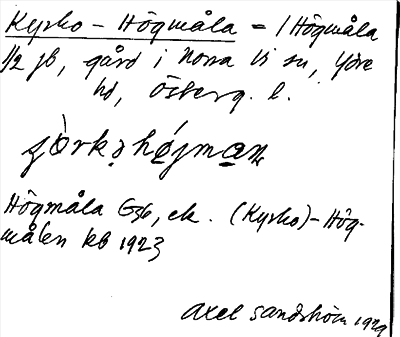 Kyrko – Högmåla = 1 Högmåla
1/2 jb, gård i Norra Vi sn, Ydre
hd, Österg. l.
Högmåla G36, ek. (Kyrko)-Hög-
målen kb 1923
Axel Sandström 1929